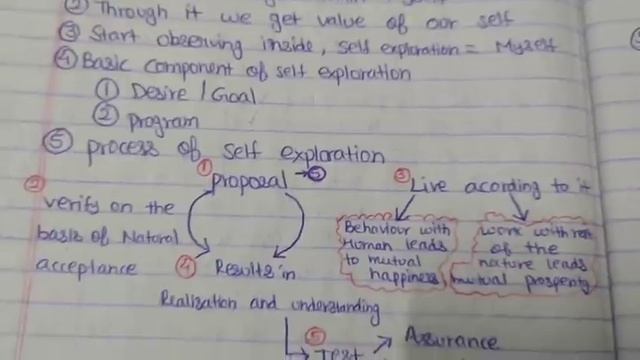 ② Through it we get value of our self
③ Start observing inside, self exploration = Myself
④ Basic component of self exploration
① Desire / Goal
② program
⑤ process of self exploration
① proposal → 
② verify on the
basis of Natural
acceptance
③ Live acording to it
Behaviour with
Human leads
to mutual
happiness
work with
of the
nature leads
mutual prosperity
④ Results in
Realization and understanding
⑤ Test
Assurance